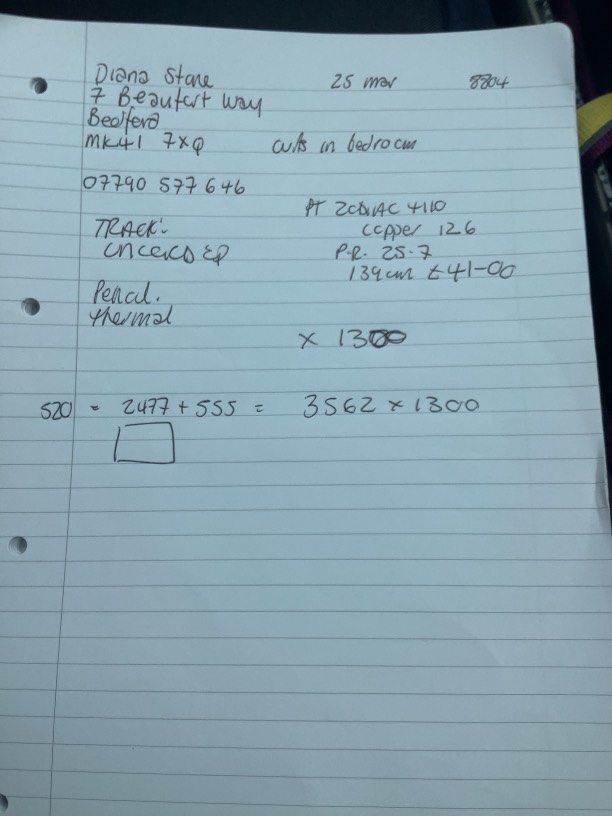 Diana Stone 25 mar 8804
7 Beaufort Way
Bedford
MK41 7XQ curts in bedroom
07790 577646
PT ZODIAC 4110
TRACK: copper 126
UNCORDED P.R. 25.7
139cm £41-00
Pencil.
thermal
x 1300
520 = 2477 + 555 = 3562 x 1300